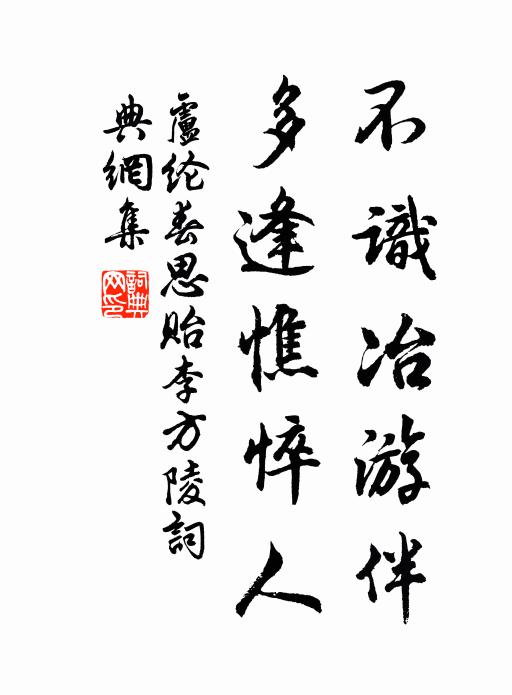 不識冶游伴
多逢憔悴人
盧纶春思贻李方陵詞
典網集
詞典网印